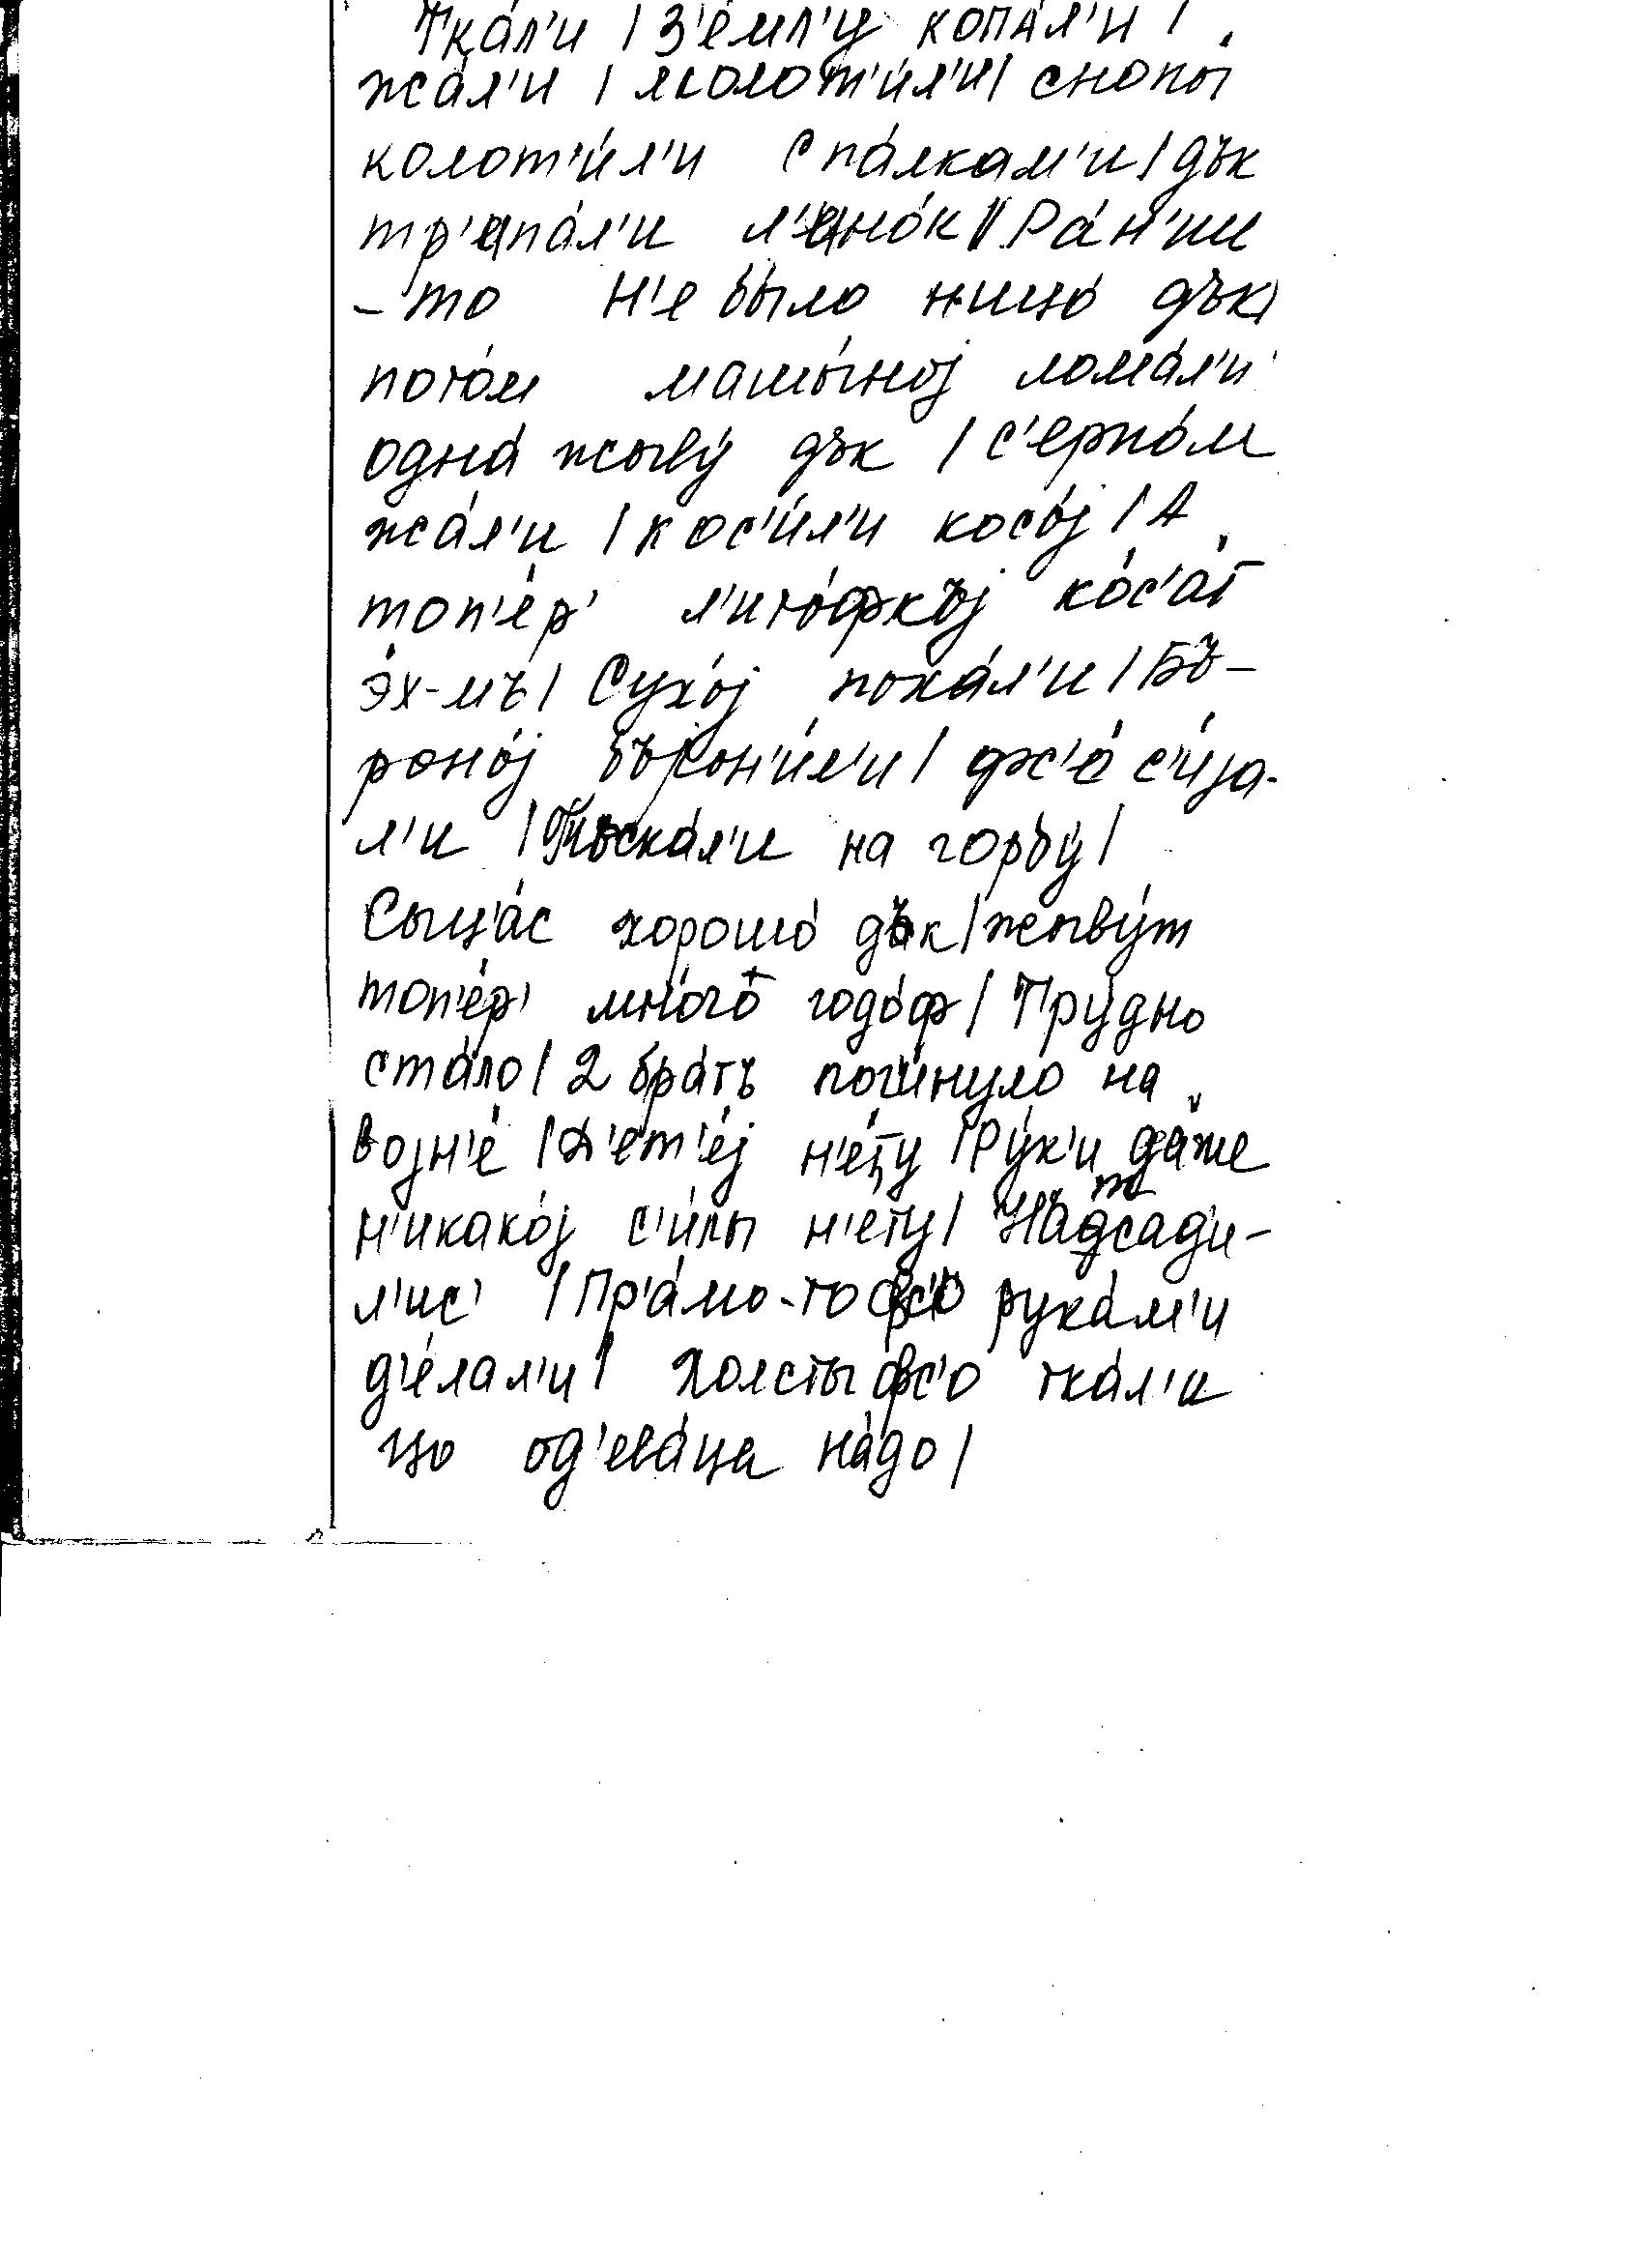 Тка́л'и / З'е́мл'у копа́л'и /
жа́л'и / молот'и́л'и / снопы́
колот'и́л'и с па́лкам'и / дък
тр'епа́л'и л'ено́к // Ра́н'ши
-то н'е́ было ницо́ дък /
пото́м машы́ној лома́л'и
одна́ жыву́ дък / с'ерпо́м
жа́л'и / кос'и́л'и косо́ј / А
топ'е́р' л'ито́фкъј ко́с'ат
э́х-мъ / Сухо́ј паха́л'и / Бъ-
роно́ј бърон'и́л'и / фс'о́ с'и́ја-
л'и / Тъска́л'и на горбу́ /
Сыц'а́с хорошо́ дък / жыву́т
топ'е́р' мно́го годо́ф / Тру́дно
ста́ло / 2 бра́тъ поги́нуло на
војн'е́ / Д'ет'е́ј н'е́ту / Ру́к'и да́же
н'икако́ј с'и́лы н'е́ту / На́тсади-
л'ис' / Пр'а́мо-то фс'о рука́м'и
д'е́лал'и / Холсты́ фс'о тка́л'и
цо од'ева́ца на́до /